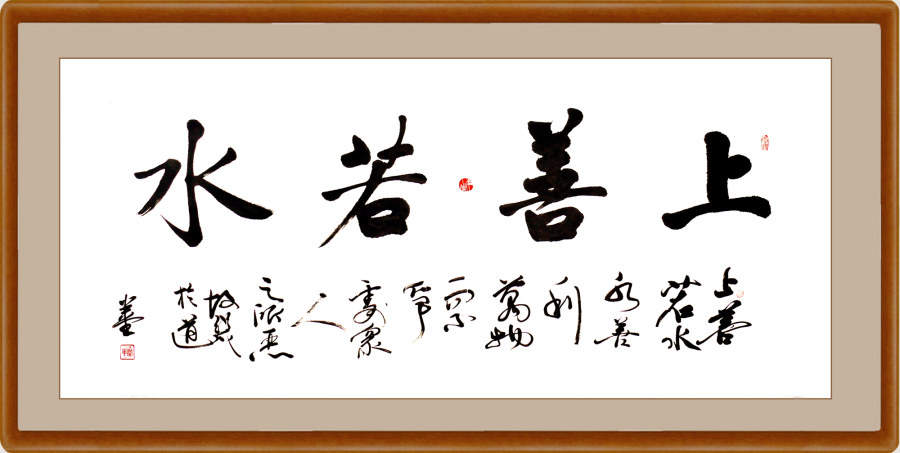 上善若水
上善
若水
水善
利
萬物
而不
爭
處衆
人
之所惡
故幾
於道